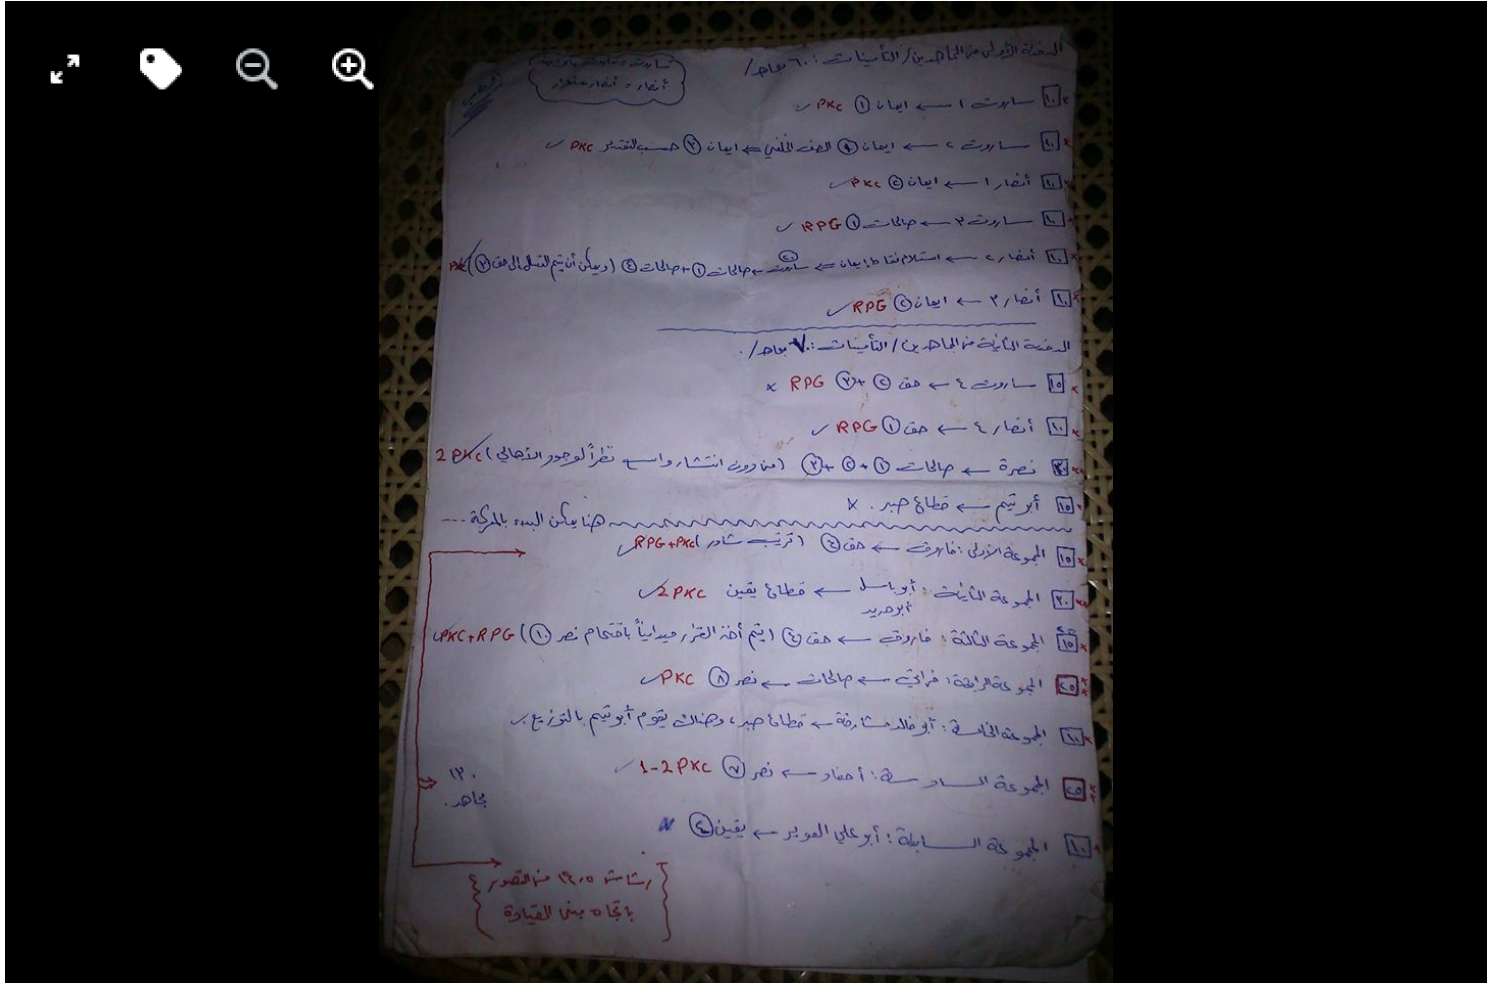 الدفعة الأولى من المجاهدين / التأمينات : ٦٠ مجاهد /
ساروت =
أنصار = أنصار
١٠ ساروت ١ ← ايمان ① PKC
١٠ ساروت ٢ ← ايمان ④ الصف الخلفي ← ايمان ③ حسب التقدير PKC
١٠ أنصار ١ ← ايمان ② PKC
١٠ ساروت ٣ ← صالحات ① RPG
١٠ أنصار ٢ ← استلام نقاط ايمان ← ساروت ② ← صالحات ① + صالحات ④ (ويمكن أن يتم التسلل إلى حق ③) PKC
١٠ أنصار ٣ ← ايمان ② RPG
الدفعة الثانية من المجاهدين / التأمينات : ٧٠ مجاهد /.
١٥ ساروت ٤ ← حق ② + ③ RPG ×
١٠ أنصار ٤ ← حق ① RPG
٣٠ نصرة ← صالحات ① + ② + ③ (من دون انتشار واسع نظراً لوجود الأهالي) 2 PKC
١٥ أبو تيم ← قطاع صبر . ×
هنا يمكن البدء بالمعركة ...
١٥ المجموعة الأولى : فاروق ← حق ④ (ترتيب) RPG+PKC
٢٠ المجموعة الثانية : أبو باسل ← قطاع يقين 2 PKC
أبو حديد
١٥ المجموعة الثالثة : فاروق ← حق ④ (يتم أخذ القرار ميدانياً باقتحام نصر ⑩) PKC+RPG
٢٥ المجموعة الرابعة : ← صالحات ← نصر ⑧ PKC
١٠ المجموعة الخامسة : أبو خالد مشارفة ← قطاع صبر ، وهناك يقوم أبو تيم بالتوزيع
٢٥ المجموعة السادسة : أحفاد ← نصر ⑦ 1-2 PKC
١٠ المجموعة السابعة : أبو علي ← يقين ④
١٣٠
مجاهد .
{ من القصور
باتجاه مبنى القيادة }